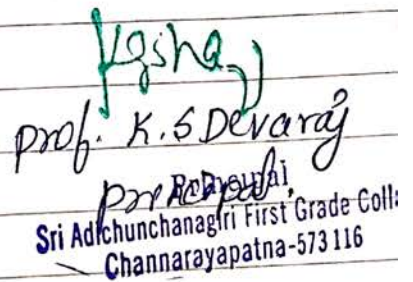 Prof. K.S Devaraj
Principal
Principal
Sri Adichunchanagiri First Grade Colla
Channarayapatna-573116